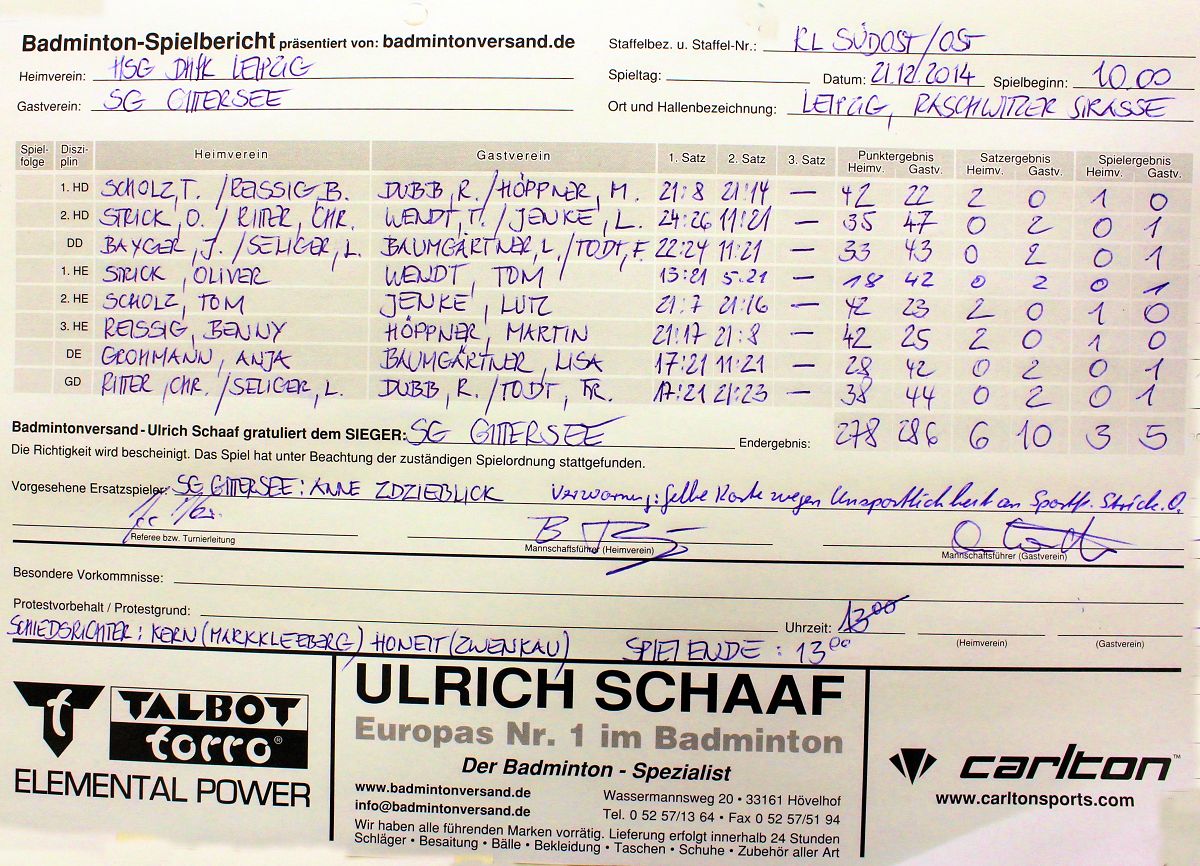 Badminton-Spielbericht präsentiert von: badmintonversand.de
Staffelbez. u. Staffel-Nr.: KL SÜDOST/OST
Heimverein: HSG DHfK LEIPZIG
Spieltag: Datum: 21.12.2014 Spielbeginn: 10.00
Gastverein: SG GITTERSEE
Ort und Hallenbezeichnung: LEIPZIG, RASCHWITZER STRASSE
Spiel-folge Diszi-plin Heimverein Gastverein 1. Satz 2. Satz 3. Satz Punktergebnis Heimv. Gastv. Satzergebnis Heimv. Gastv. Spielergebnis Heimv. Gastv.
1. HD SCHOLZ, T. / REISSIG, B. DUBB, R. / HÖPPNER, M. 21:8 21:14 — 42 22 2 0 1 0
2. HD STRICK, O. / RITTER, CHR. WENDT, T. / JENKE, L. 24:26 11:21 — 35 47 0 2 0 1
DD BAYGER, J. / SELIGER, L. BAUMGÄRTNER, L / TODT, F. 22:24 11:21 — 33 43 0 2 0 1
1. HE STRICK, OLIVER WENDT, TOM 13:21 5:21 — 18 42 0 2 0 1
2. HE SCHOLZ, TOM JENKE, LUTZ 21:7 21:16 — 42 23 2 0 1 0
3. HE REISSIG, BENNY HÖPPNER, MARTIN 21:17 21:8 — 42 25 2 0 1 0
DE GROHMANN, ANJA BAUMGÄRTNER, LISA 17:21 11:21 — 28 42 0 2 0 1
GD RITTER, CHR. / SELIGER, L. DUBB, R. / TODT, FR. 17:21 21:23 — 38 44 0 2 0 1
Badmintonversand - Ulrich Schaaf gratuliert dem SIEGER: SG GITTERSEE Endergebnis: 278 286 6 10 3 5
Die Richtigkeit wird bescheinigt. Das Spiel hat unter Beachtung der zuständigen Spielordnung stattgefunden.
Vorgesehene Ersatzspieler: SG GITTERSEE: ANNE ZDZIEBLICK Verwarnung: Gelbe Karte wegen Unsportlichkeit an Sportfr. Strick. O.
Referee bzw. Turnierleitung Mannschaftsführer (Heimverein) Mannschaftsführer (Gastverein)
Besondere Vorkommnisse:
Protestvorbehalt / Protestgrund: Uhrzeit: 13:00 (Heimverein) (Gastverein)
SCHIEDSRICHTER: KERN (MARKKLEEBERG), (ZWENKAU) SPIELENDE: 13:00
TALBOT
torro®
ELEMENTAL POWER
ULRICH SCHAAF
Europas Nr. 1 im Badminton
Der Badminton - Spezialist
www.badmintonversand.de
info@badmintonversand.de
Wassermannsweg 20 • 33161 Hövelhof
Tel. 0 52 57/13 64 • Fax 0 52 57/51 94
Wir haben alle führenden Marken vorrätig. Lieferung erfolgt innerhalb 24 Stunden
Schläger • Besaitung • Bälle • Bekleidung • Taschen • Schuhe • Zubehör aller Art
carlton™
www.carltonsports.com